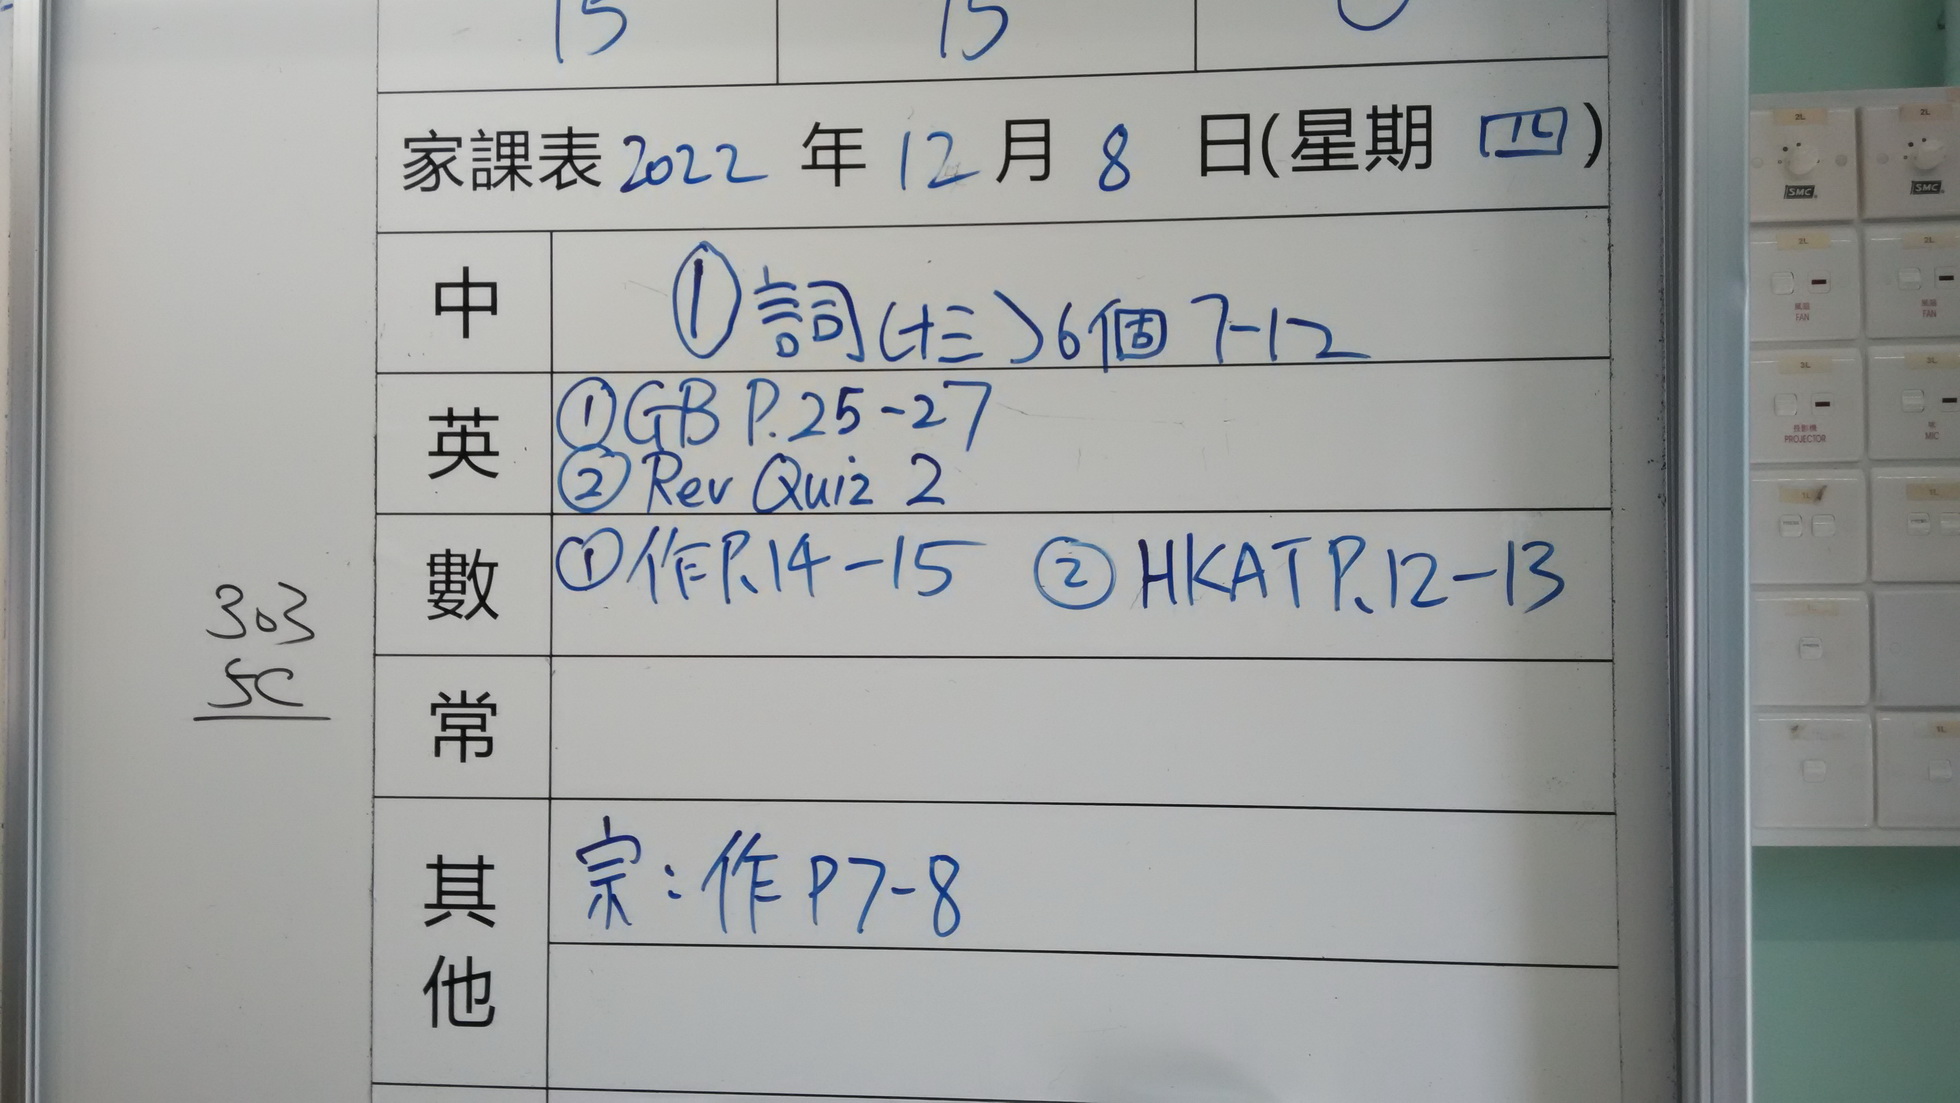 15 15
家課表 2022 年 12 月 8 日(星期 四)
中 ① 詞(十三) 6個 7-12
英 ① GB P.25-27
② Rev Quiz 2
數 ① 作P.14-15 ② HKAT P.12-13
常
其他 宗：作 P7-8
303
5C
2L 2L
SMC SMC
2L 2L
風扇 風扇
FAN FAN
3L 3L
投影機
PROJECTOR MIC
1L 1L
1L